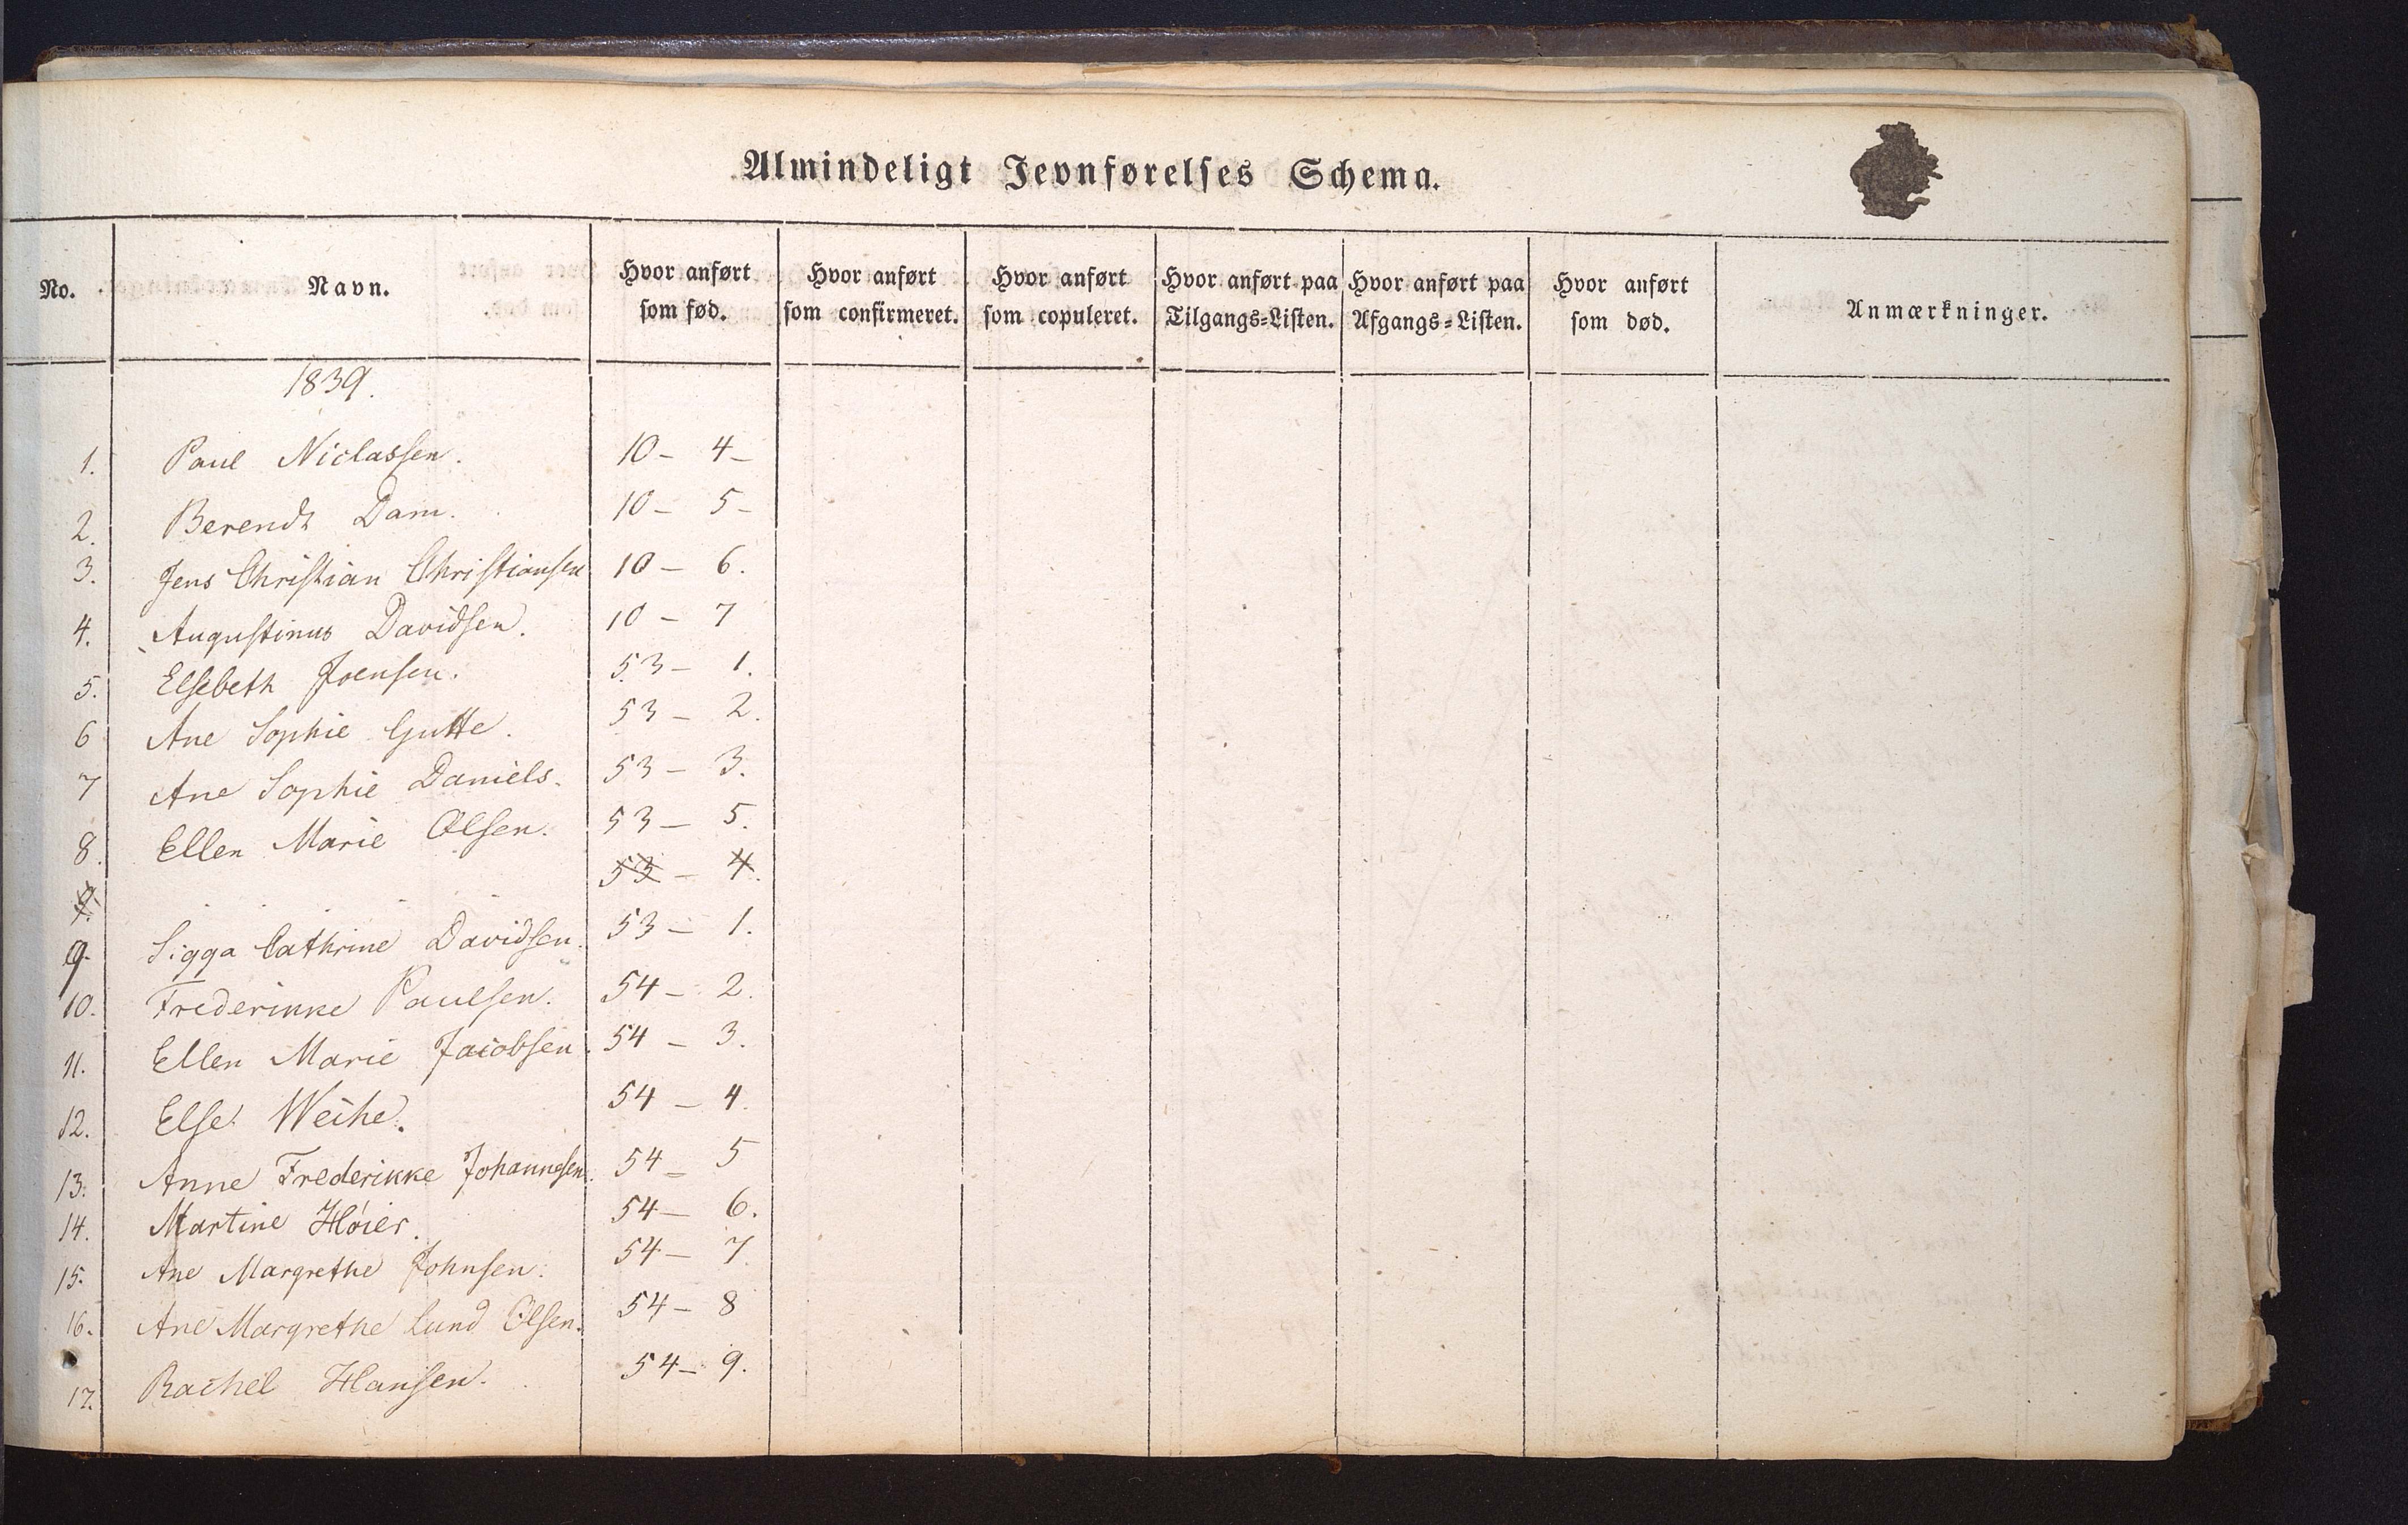 Almindeligt Jevnførelses Schema.
No. Navn. Hvor anført som fød. Hvor anført som confirmeret. Hvor anført som copuleret. Hvor anført paa Tilgangs=Listen. Hvor anført paa Afgangs=Listen. Hvor anført som død. Anmærkninger.
1839.
1. Paul Niclassen. 10 - 4 -
2. Berendt Dam. 10 - 5 -
3. Jens Christian Christiansen 10 - 6.
4. Augustinus Davidsen. 10 - 7
5. Elsebeth Joensen. 53 - 1.
6 Ane Sophie Gutte. 53 - 2.
7 Ane Sophie Daniels. 53 - 3.
8. Ellen Marie Olsen. 53 - 5.
9. 53 - 4.
9. Sigga Cathrine Davidsen. 53 - 1.
10. Frederikke Paulsen. 54 - 2.
11. Ellen Marie Jacobsen. 54 - 3.
12. Else Weihe. 54 - 4.
13. Anne Frederikke Johannesen. 54 - 5
14. Martine Høier. 54 - 6.
15. Ane Margrethe Johnsen. 54 - 7
16. Ane Margrethe Lund Olsen. 54 - 8
17. Rachel Hansen. 54 - 9.